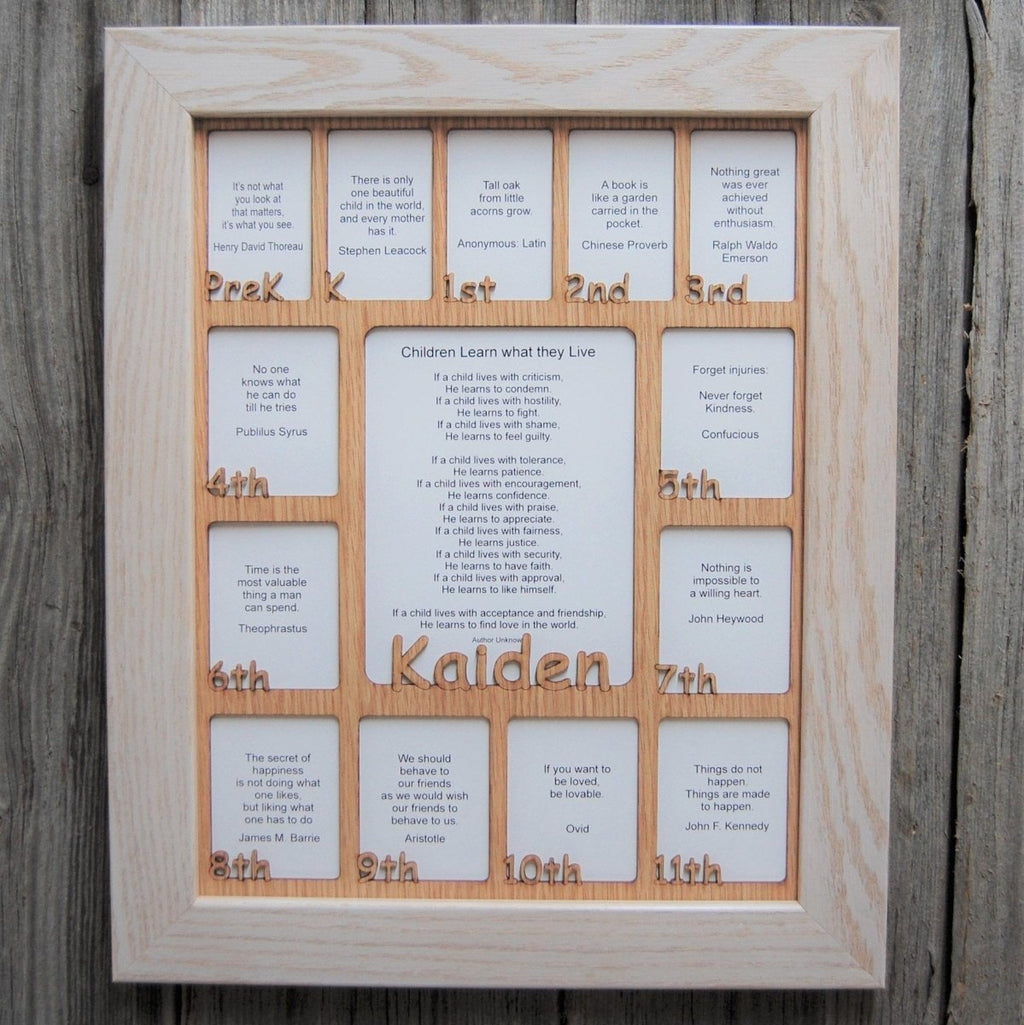 It's not what
you look at
that matters,
it's what you see.
Henry David Thoreau
PreK
There is only
one beautiful
child in the world,
and every mother
has it.
Stephen Leacock
K
Tall oak
from little
acorns grow.
Anonymous: Latin
1st
A book is
like a garden
carried in the
pocket.
Chinese Proverb
2nd
Nothing great
was ever
achieved
without
enthusiasm.
Ralph Waldo
Emerson
3rd
No one
knows what
he can do
till he tries
Publilus Syrus
4th
Children Learn what they Live
If a child lives with criticism,
He learns to condemn.
If a child lives with hostility,
He learns to fight.
If a child lives with shame,
He learns to feel guilty.
If a child lives with tolerance,
He learns patience.
If a child lives with encouragement,
He learns confidence.
If a child lives with praise,
He learns to appreciate.
If a child lives with fairness,
He learns justice.
If a child lives with security,
He learns to have faith.
If a child lives with approval,
He learns to like himself.
If a child lives with acceptance and friendship,
He learns to find love in the world.
Author Unknow
Kaiden
Forget injuries:
Never forget
Kindness.
Confucious
5th
Time is the
most valuable
thing a man
can spend.
Theophrastus
6th
Nothing is
impossible to
a willing heart.
John Heywood
7th
The secret of
happiness
is not doing what
one likes,
but liking what
one has to do
James M. Barrie
8th
We should
behave to
our friends
as we would wish
our friends to
behave to us.
Aristotle
9th
If you want to
be loved,
be lovable.
Ovid
10th
Things do not
happen.
Things are made
to happen.
John F. Kennedy
11th